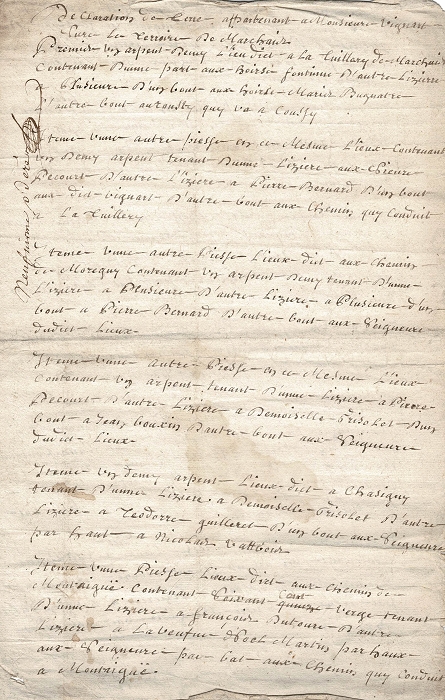 Declaration de terre appartenant a Monsieur Vignart
sure le terroire De Marchais
Premier un arpent Demy Lieu dict a la tuillery de Marchais
Contenant D'unne part aux hoirs D'autre Liziere
a plusieure D'un bout aux hoirs Marie
D'autre bout au quy va a Coussy
Iteme unne autre piesse en ce Mesme Lieux Contenant
un Demy arpent tenant D'unne Liziere aux Sieure
Pecourt D'autre Liziere a Pierre Bernard D'un bout
aux dict Vignart D'autre bout aux Chemin quy Conduit
a La tuillery
Iteme unne autre Piesse Lieux dict aux Chemin
de Contenant un arpent Demy tenant D'unne
Liziere a Plusieure D'autre Liziere a Plusieure d'un
bout a Pierre Bernard D'autre bout aux Seigneure
dudict Lieux
Iteme unne autre Piesse en ce Mesme Lieux
Contenant un arpent tenant D'unne Liziere a Pierre
Pecourt D'autre Liziere a Demoiselle D'un
bout a Jean D'autre bout aux Seigneure
dudict Lieux
Iteme un Demy arpent Lieux dict a Chasigny
tenant D'unne Liziere a Demoiselle D'autre
Liziere a quilleret D'un bout aux Seigneure
par haut a Nicolas
Iteme unne Piesse Lieux dict aux Chemin de
Montaigüe Contenant Soixant verge tenant
D'unne Liziere a francois D'autre
Liziere a La veufue Noel Martin par haux
aux Seigneure par bat aux Chemin quy Conduit
a Montaigüe